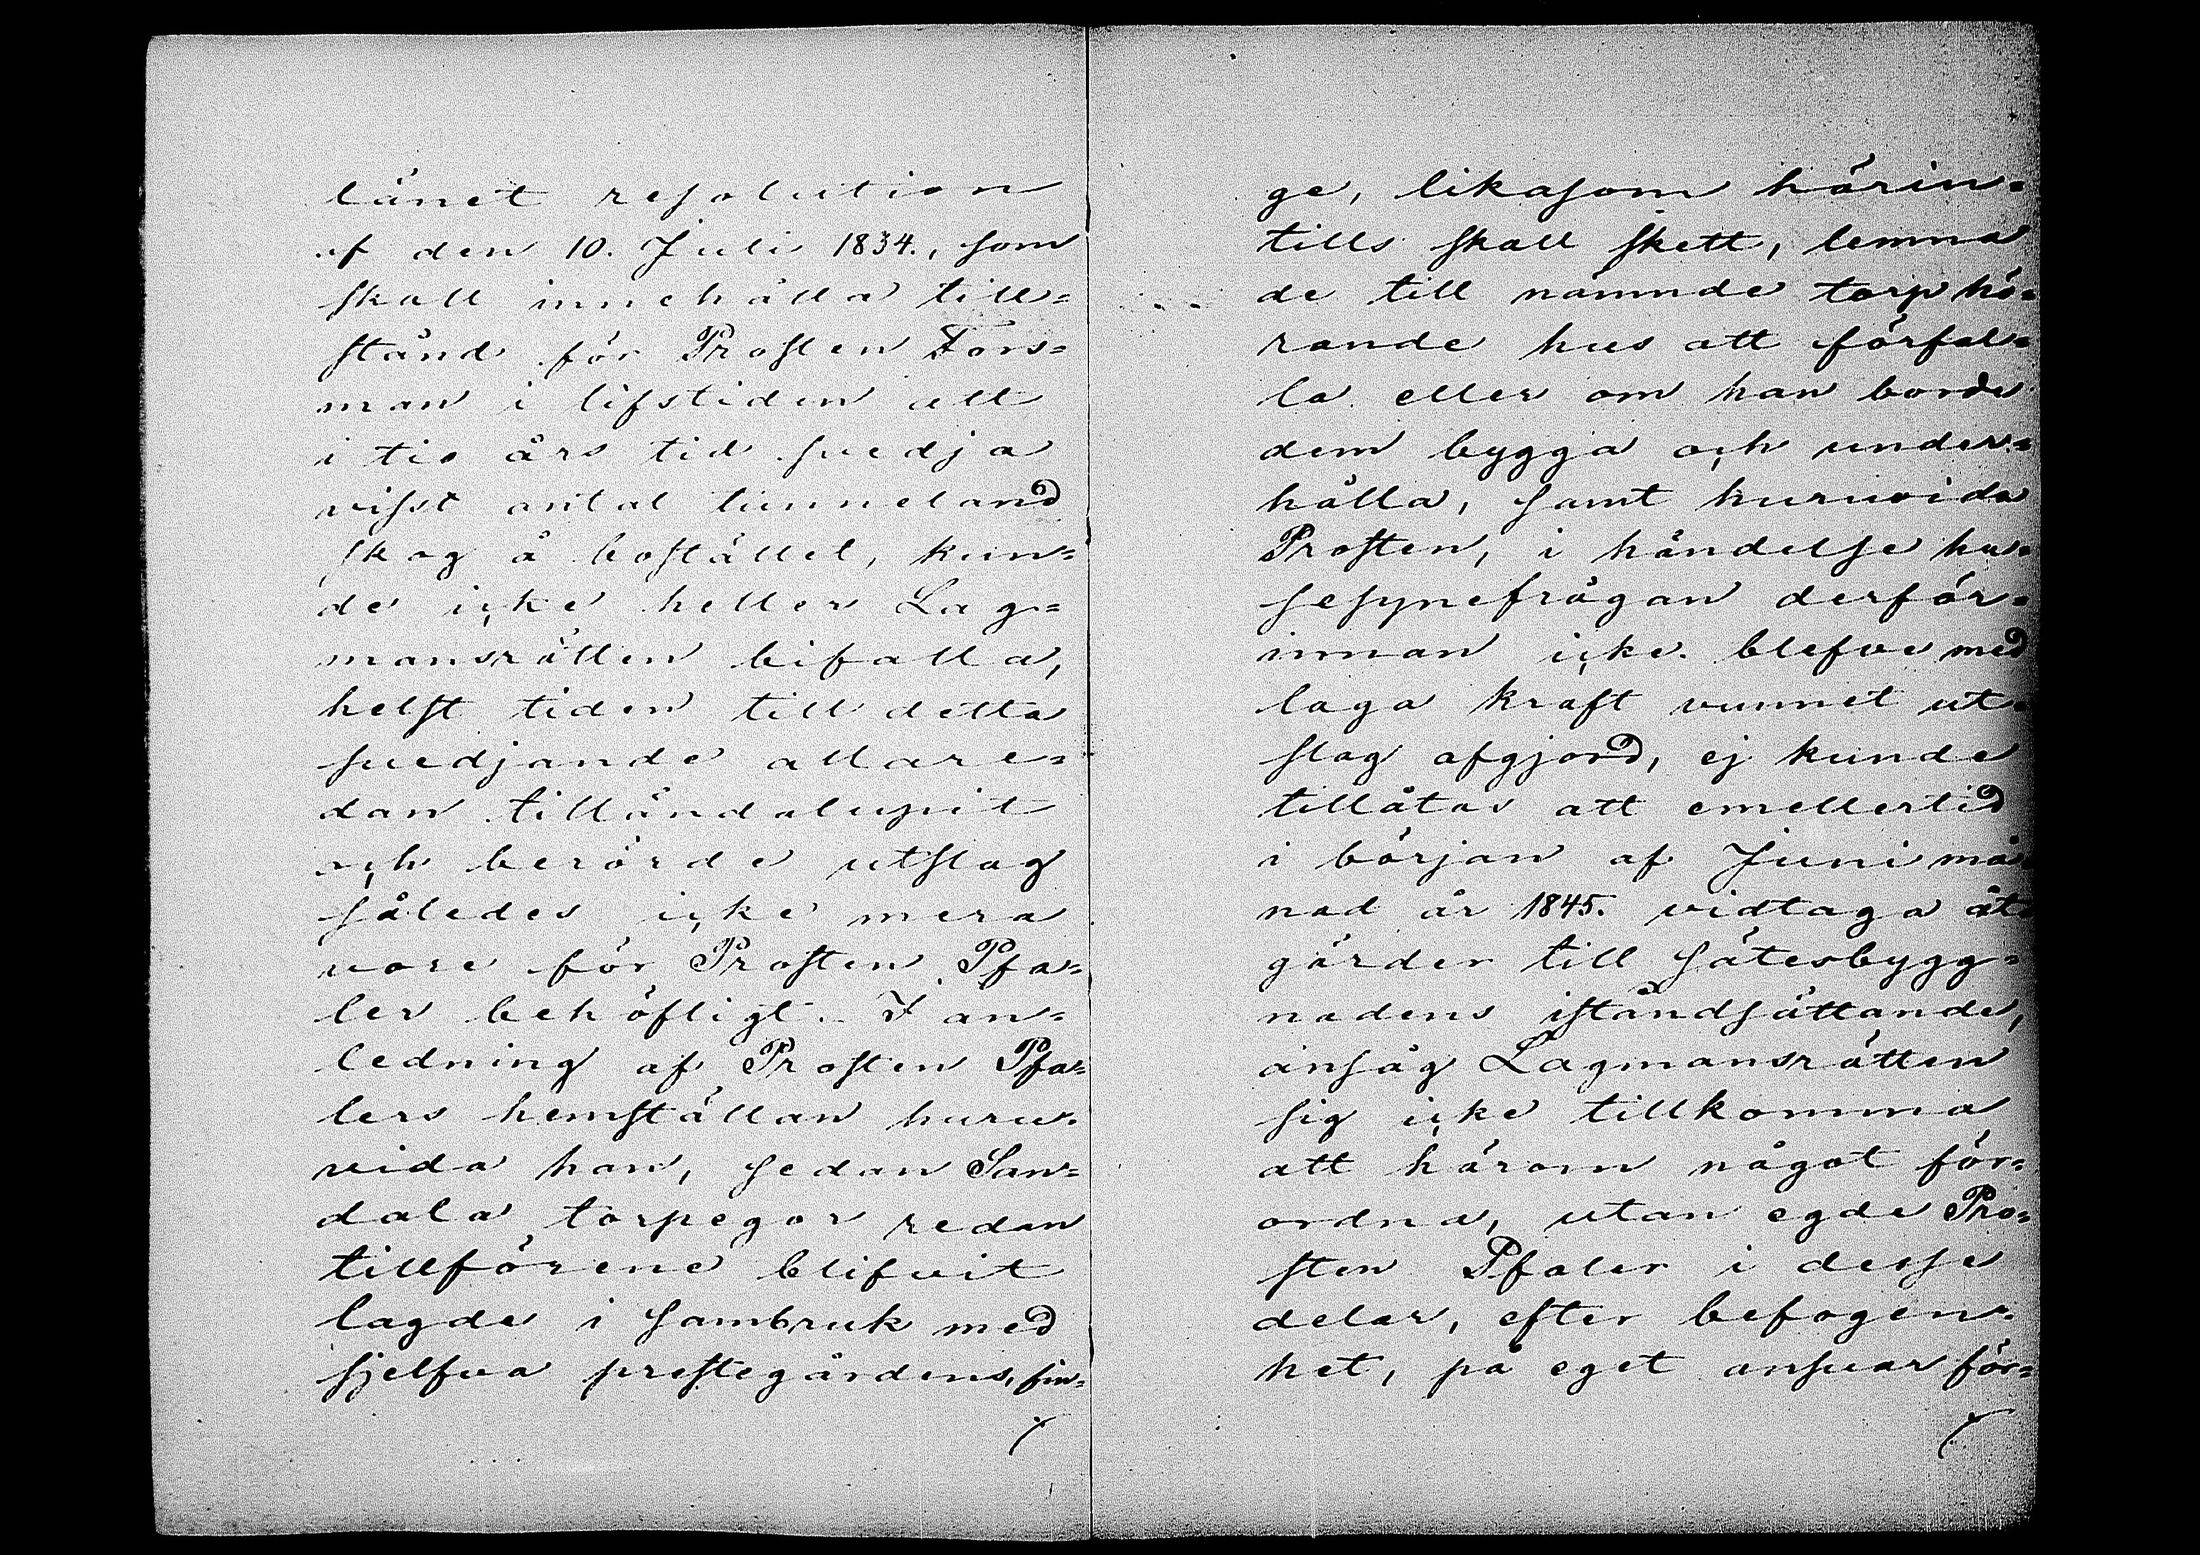 länet resolution
af den 10. Juli 1834., som
skall innehålla till=
stånd för Prosten Fors=
man i lifstiden att
i tio års tid svedja
visst antal tunneland
skog å bostället, kun=
de icke heller Lag=
mansrätten bifalla,
helst tiden till detta
svedjande allare=
dan tilländalupit
och berörde utslag
således icke mera
vore för Prosten Pfa=
ler behöfligt. I an=
ledning af Prosten Pfa=
lers hemställan huru=
vida han, sedan San=
dala torpegor redan
tillförene blifvit
lagde i sambruk med
sjelfva prestegårdens, fin=
ge, likasom härin=
tills skall skett, lemna
de till nämnde torp hö=
rande hus att förfal=
la eller om han borde
dem bygga och under=
hålla, samt huruvida
Prosten, i händelse hu=
sesynefrågan derför=
innan icke blefve med
laga kraft vunnet ut=
slag afgjord, ej kunde
tillåtas att emellertid
i början af Juni må=
nad år 1845. vidtaga åt=
gärder till sätesbygg=
nadens iståndsättande,
ansåg Lagmansrätten
sig icke tillkomma
att härom något för=
ordna, utan egde Pro=
sten Pfaler i desse
delar, efter befogen=
het, på eget ansvar för=